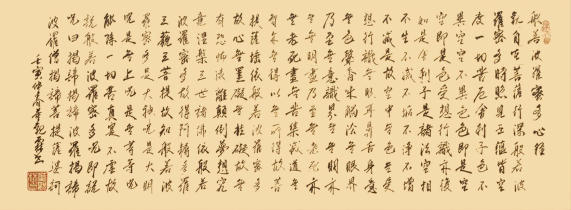 般若波羅蜜多心經
觀自在菩薩行深般若波
羅蜜多時照見五蘊皆空
度一切苦厄舍利子色不
異空空不異色色即是空
空即是色受想行識亦復
如是舍利子是諸法空相
不生不滅不垢不淨不增
不減是故空中無色無受
想行識無眼耳鼻舌身意
無色聲香味觸法無眼界
乃至無意識界無無明亦
無無明盡乃至無老死亦
無老死盡無苦集滅道無
智亦無得以無所得故菩
提薩埵依般若波羅蜜多
故心無罣礙無罣礙故無
有恐怖遠離顛倒夢想究
竟涅槃三世諸佛依般若
波羅蜜多故得阿耨多羅
三藐三菩提故知般若波
羅蜜多是大神咒是大明
咒是無上咒是無等等咒
能除一切苦真實不虛故
說般若波羅蜜多咒即說
咒曰揭諦揭諦波羅揭諦
波羅僧揭諦菩提薩婆訶
壬寅仲春